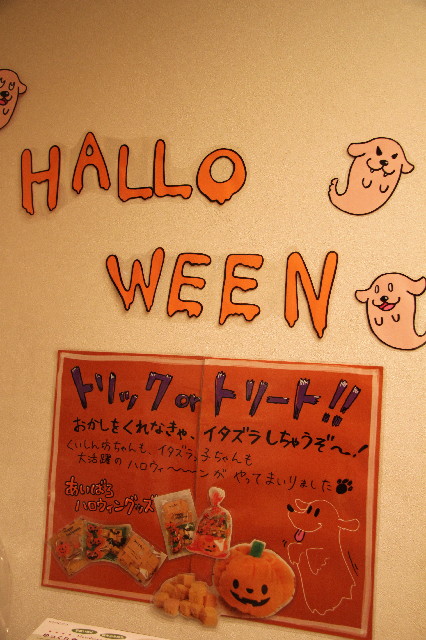 HALLO
WEEN
トリック or トリート!!
おかしをくれなきゃ、イタズラしちゃうぞ〜!
くいしん坊ちゃんも、イタズラっ子ちゃんも
大活躍のハロウィ〜〜〜ンがやってまいりました
あいばろ
ハロウィングッズ